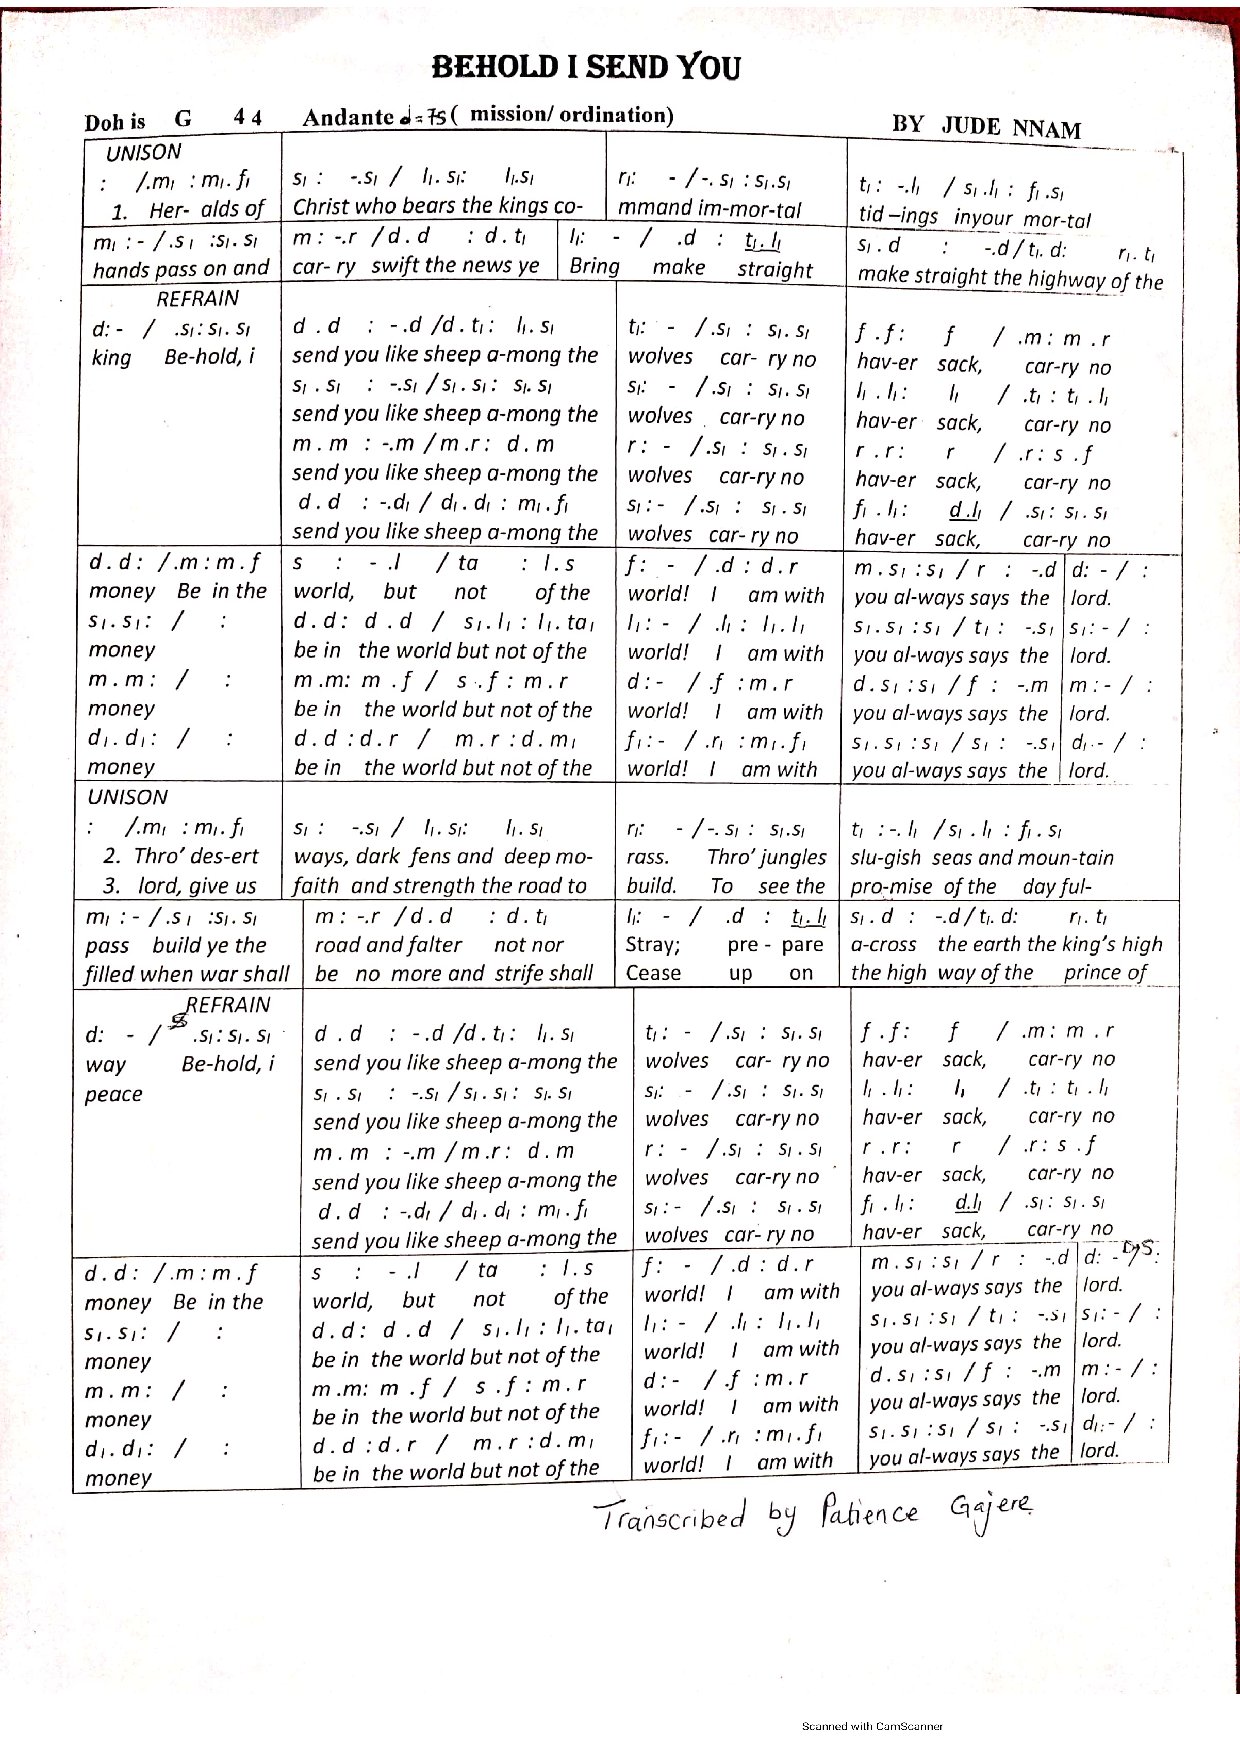 BEHOLD I SEND YOU
Doh is G 4 4 Andante 𝅗𝅥=75 ( mission/ ordination) BY JUDE NNAM
UNISON
: /.m₁ : m₁. f₁ s₁ : -.s₁ / l₁. s₁: l₁.s₁ r₁: - / -. s₁ : s₁.s₁ t₁ : -.l₁ / s₁ .l₁ : f₁ .s₁
1. Her- alds of Christ who bears the kings co- mmand im-mor-tal tid –ings inyour mor-tal
m₁ : - / .s₁ :s₁. s₁ m : -.r / d . d : d . t₁ l₁: - / .d : t₁. l₁ s₁ . d : -.d / t₁. d: r₁. t₁
hands pass on and car- ry swift the news ye Bring make straight make straight the highway of the
REFRAIN
d: - / .s₁: s₁. s₁ d . d : - .d /d . t₁: l₁. s₁ t₁: - / .s₁ : s₁. s₁ f . f : f / .m : m . r
king Be-hold, i send you like sheep a-mong the wolves car- ry no hav-er sack, car-ry no
s₁ . s₁ : -.s₁ / s₁ . s₁: s₁. s₁ s₁: - / .s₁ : s₁. s₁ l₁ . l₁: l₁ / .t₁ : t₁ . l₁
send you like sheep a-mong the wolves car-ry no hav-er sack, car-ry no
m . m : -.m / m . r : d . m r : - / .s₁ : s₁ . s₁ r . r : r / .r : s . f
send you like sheep a-mong the wolves car-ry no hav-er sack, car-ry no
d . d : -.d₁ / d₁. d₁ : m₁. f₁ s₁: - / .s₁ : s₁ . s₁ f₁ . l₁: d.l₁ / .s₁: s₁. s₁
send you like sheep a-mong the wolves car- ry no hav-er sack, car-ry no
d . d : / .m : m . f s : - .l / ta : l . s f : - / .d : d . r m . s₁ : s₁ / r : -.d d: - / :
money Be in the world, but not of the world! I am with you al-ways says the lord.
s₁. s₁: / : d . d: d . d / s₁. l₁ : l₁. ta₁ l₁: - / .l₁ : l₁. l₁ s₁. s₁ : s₁ / t₁ : -.s₁ s₁: - / :
money be in the world but not of the world! I am with you al-ways says the lord.
m . m : / : m .m: m . f / s . f : m . r d : - / .f : m . r d . s₁ : s₁ / f : -.m m : - / :
money be in the world but not of the world! I am with you al-ways says the lord.
d₁. d₁: / : d . d : d . r / m . r : d . m₁ f₁: - / .r₁ : m₁. f₁ s₁. s₁ : s₁ / s₁ : -.s₁ d₁ - / :
money be in the world but not of the world! I am with you al-ways says the lord.
UNISON
: /.m₁ : m₁. f₁ s₁ : -.s₁ / l₁. s₁: l₁. s₁ r₁: - / -. s₁ : s₁.s₁ t₁ : -. l₁ / s₁ . l₁ : f₁ . s₁
2. Thro’ des-ert ways, dark fens and deep mo- rass. Thro’ jungles slu-gish seas and moun-tain
3. lord, give us faith and strength the road to build. To see the pro-mise of the day ful-
m₁ : - / .s₁ :s₁. s₁ m : -.r / d . d : d . t₁ l₁: - / .d : t₁. l₁ s₁ . d : -.d / t₁. d: r₁. t₁
pass build ye the road and falter not nor Stray; pre - pare a-cross the earth the king’s high
filled when war shall be no more and strife shall Cease up on the high way of the prince of
REFRAIN
d: - / 𝄋 .s₁: s₁. s₁ d . d : -.d /d . t₁: l₁. s₁ t₁: - / .s₁ : s₁. s₁ f . f : f / .m : m . r
way Be-hold, i send you like sheep a-mong the wolves car- ry no hav-er sack, car-ry no
peace s₁ . s₁ : -.s₁ / s₁ . s₁: s₁. s₁ s₁: - / .s₁ : s₁. s₁ l₁ . l₁: l₁ / .t₁ : t₁ . l₁
send you like sheep a-mong the wolves car-ry no hav-er sack, car-ry no
m . m : -.m / m . r : d . m r : - / .s₁ : s₁ . s₁ r . r : r / .r : s . f
send you like sheep a-mong the wolves car-ry no hav-er sack, car-ry no
d . d : -.d₁ / d₁. d₁ : m₁. f₁ s₁: - / .s₁ : s₁ . s₁ f₁ . l₁: d.l₁ / .s₁: s₁. s₁
send you like sheep a-mong the wolves car- ry no hav-er sack, car-ry no
d . d : / .m : m . f s : - .l / ta : l . s f : - / .d : d . r m . s₁ : s₁ / r : -.d d: - / : D/S
money Be in the world, but not of the world! I am with you al-ways says the lord.
s₁. s₁: / : d . d: d . d / s₁. l₁ : l₁. ta₁ l₁: - / .l₁ : l₁. l₁ s₁. s₁ : s₁ / t₁ : -.s₁ s₁: - / :
money be in the world but not of the world! I am with you al-ways says the lord.
m . m : / : m .m: m . f / s . f : m . r d : - / .f : m . r d . s₁ : s₁ / f : -.m m : - / :
money be in the world but not of the world! I am with you al-ways says the lord.
d₁. d₁: / : d . d : d . r / m . r : d . m₁ f₁: - / .r₁ : m₁. f₁ s₁. s₁ : s₁ / s₁ : -.s₁ d₁: - / :
money be in the world but not of the world! I am with you al-ways says the lord.
Transcribed by Patience Gajere
Scanned with CamScanner